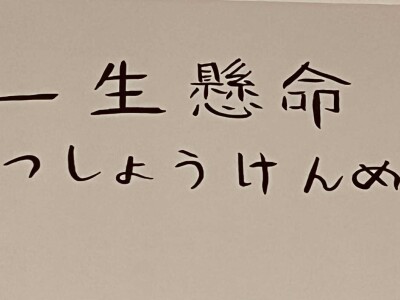 一生懸命
っしょうけんめ